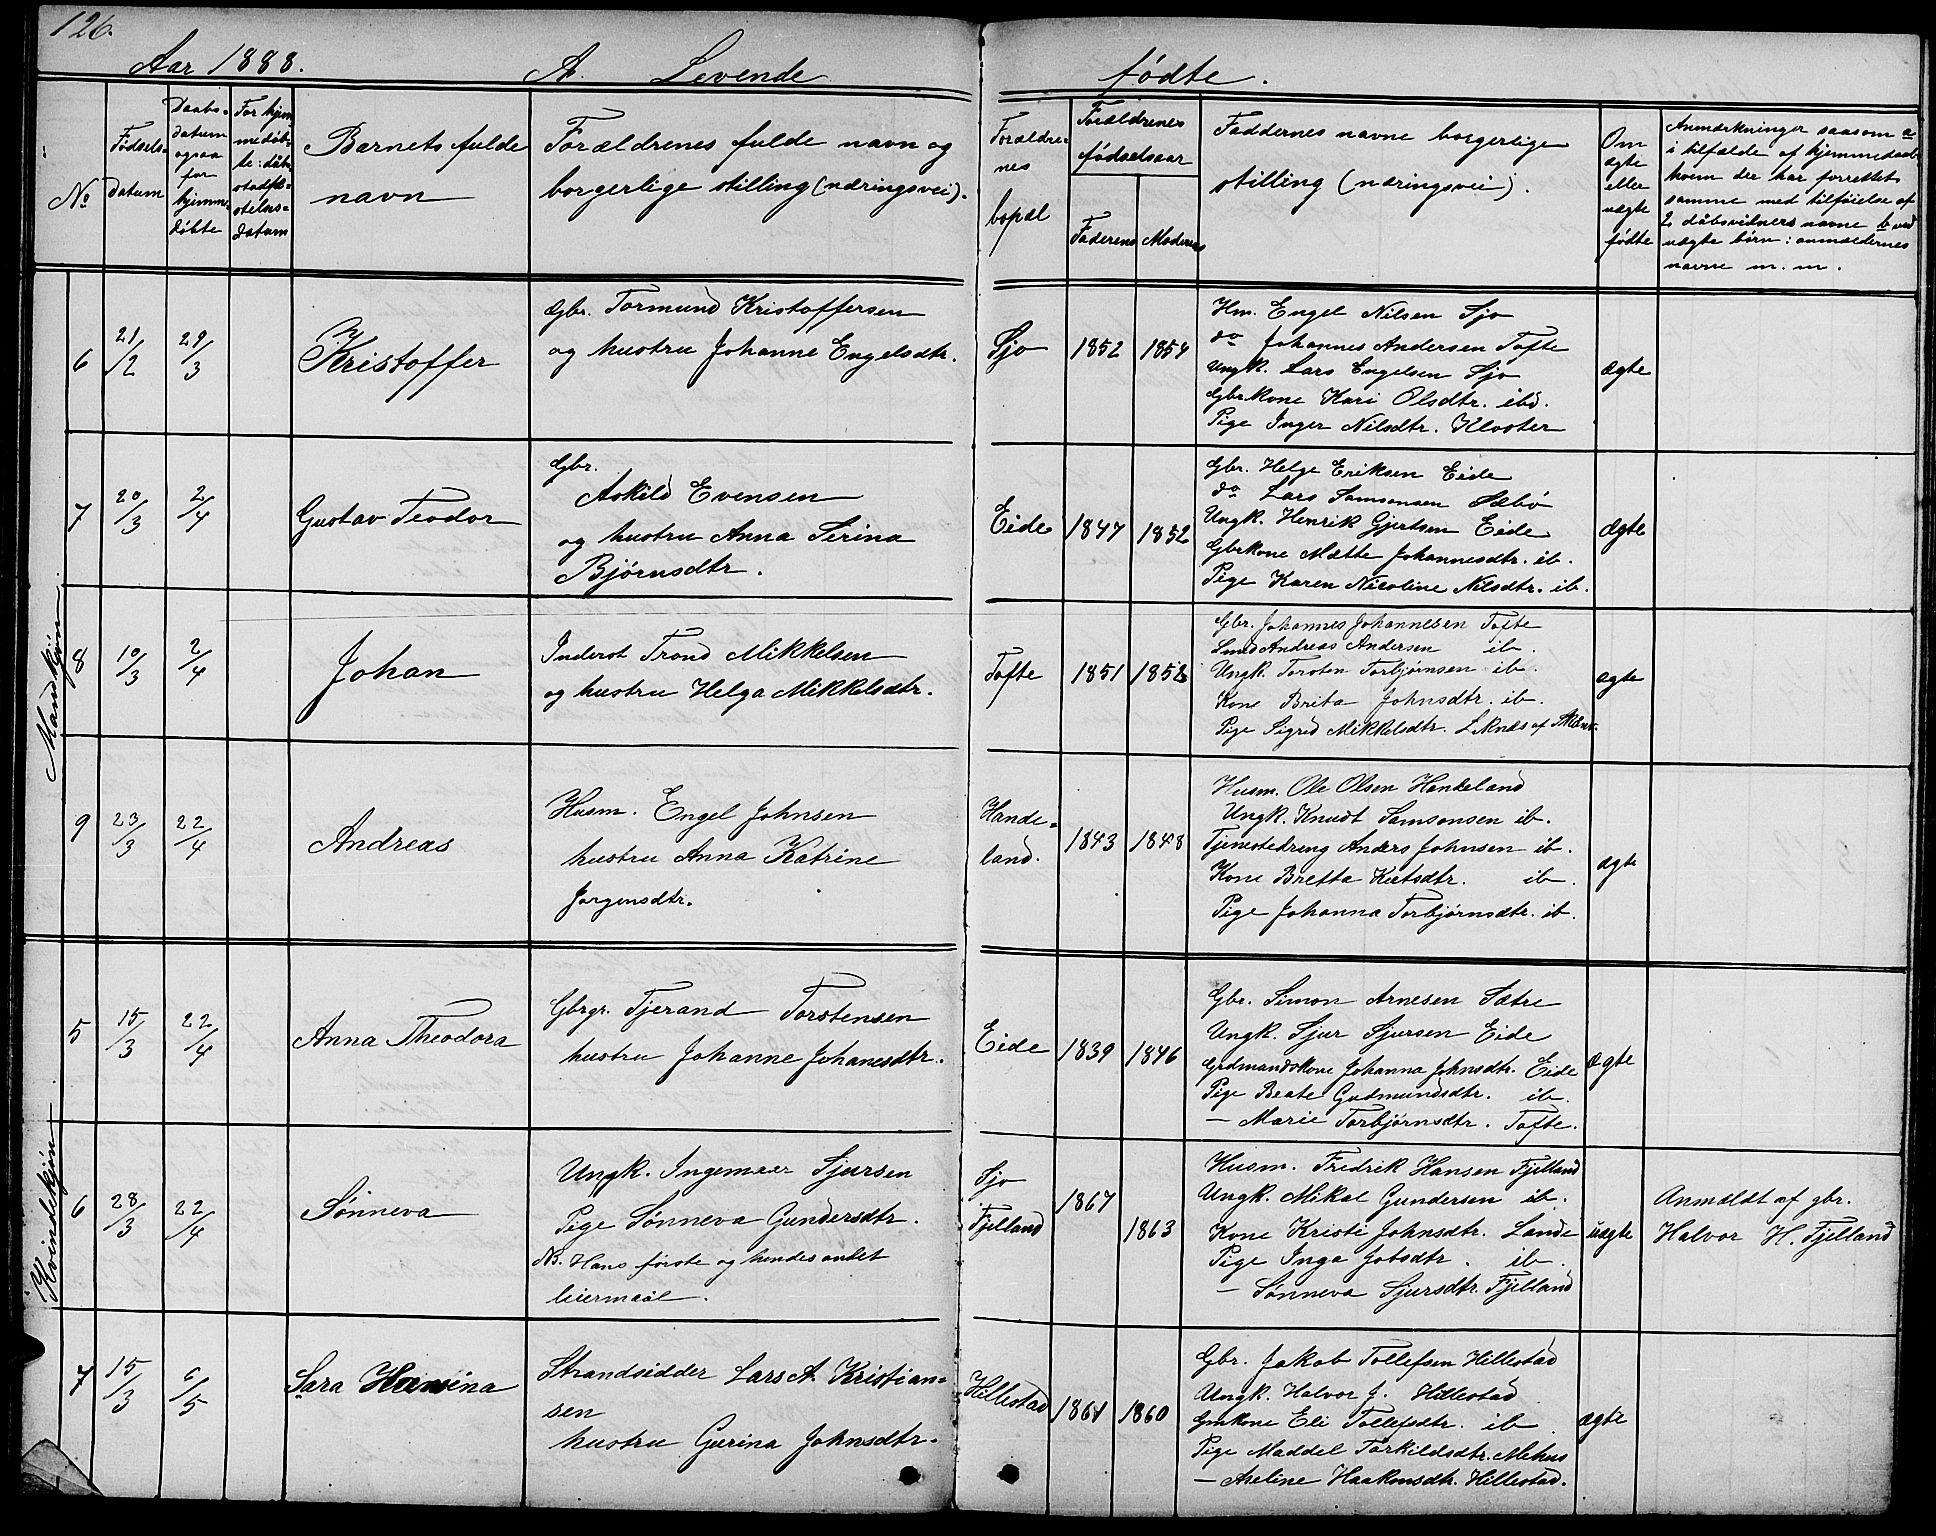 126.
Aar 1888. A. Levende fødte.
No
Fødsels-
datum
Daabs-
datum
ogsaa
for
hjemme-
døbte
For hjem-
medøb-
te: dåbs-
stadfæ-
stelses-
datum
Barnets fulde
navn
Forældrenes fulde navn og
borgerlige stilling (næringsvei).
Forældre-
nes
bopæl
Forældrenes
fødselsaar
Faderens Moderens
Faddernes navne borgerlige
stilling (næringsvei).
Om
ægte
eller
uægte
fødte
Anmærkninger saasom a
i tilfælde af hjemmedaab
hvem der har forrettet
samme med tilføielse af
2 dåbsvidners navne b ved
uægte børn: anmældernes
navne m. m.
Mandkjøn
6
21/2
29/3
Kristoffer
Gbr. Tormund Kristoffersen
og hustru Johanne Engelsdtr.
Sjo
1852
1854
Hm. Engel Nilsen Sjo
do Johannes Andersen Tofte
Ungk. Lars Engelsen Sjo
Gbrkone Kari Olsdtr. ibd.
Pige Inger Nilsdtr. Kloster
ægte
7
20/3
2/4
Gustav Teodor
Gbr.
Askild Evensen
og hustru Anna Serina
Bjørnsdtr.
Eide
1847
1852
Gbr. Helge Eriksen Eide
do Lars Samsonsen Sæbø
Ungk. Henrik Gjertsen Eide
Gbrkone Mætte Johannesdtr. ib.
Pige Karen Nicoline Nilsdtr. ib.
ægte
8
10/3
2/4
Johan
Inderst Trond Mikkelsen
og hustru Helga Mikkelsdtr.
Tofte
1851
Gbr. Johannes Johannesen Tofte
Smed Andreas Andersen ib
Ungk. Torsten Torbjørnsen ib.
Kone Brita Johnsdtr. ib.
Pige Sigrid Mikkelsdtr. Leknæs af
ægte
9
23/3
22/4
Andreas
Husm. Engel Johnsen
hustru Anna Katrine
Jørgensdtr.
Hande-
land.
1843
1848
Husm. Ole Olsen Handeland
Ungk. Knudt Samsonsen ib.
Tjenestedreng Anders Johnsen ib.
Kone Bretta ib.
Pige Johanna Torbjørnsdtr. ib.
ægte
Kvindekjøn
5
15/3
22/4
Anna Theodora
Gbrgr. Tjerand Torstensen
hustru Johanne Johanesdtr.
Eide
1839
1846
Gbr. Simon Arnesen Sætre
Ungk. Sjur Sjursen Eide
Grdmandskone Johanna Johnsdtr. Eide
Pige Beate Gudmundsdtr. ib.
— Marie Torbjørnsdtr. Tofte.
ægte
6
28/3
22/4
Sønneva
Ungk. Ingemaer Sjursen
Pige Sønneva Gundersdtr.
NB. Hans første og hendes andet
leiermaal.
Sjo
Fjelland
1867
1863
Husm. Fredrik Hansen Fjelland
Ungk. Mikal Gundersen ib.
Kone Kristi Johnsdtr. Lande
Pige Inga Jobsdtr. ib.
— Sønneva Sjursdtr. Fjelland
uægte
Anmeldt af gbr.
Halvor H. Fjelland
7
15/3
6/5
Sara Hansina
Strandsidder Lars A. Kristian-
sen
hustru Gurina Johnsdtr.
Hillestad
1861
1860
Gbr. Jakob Tollefsen Hillestad
Ungk. Halvor J. Hillestad
Gmkone Eli Tollefsdtr. ib
Pige Maddel Torkildsdtr. Mehus
— Aseline Haakonsdtr. Hillestad.
ægte